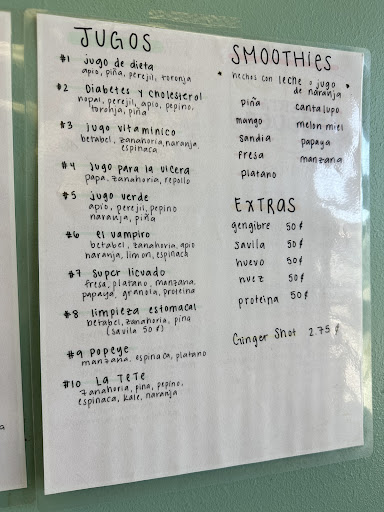 JUGOS
#1 jugo de dieta
apio, piña, perejil, toronja
#2 Diabetes y cholesterol
nopal, perejil, apio, pepino,
toronja, piña
#3 jugo vitaminico
betabel, zanahoria, naranja,
espinaca
#4 jugo para la vicera
papa, zanahoria, repollo
#5 jugo verde
apio, perejil, pepino
naranja, piña
#6 el vampiro
betabel, zanahoria, apio
naranja, limon, espinach
#7 Super licuado
fresa, platano, manzana,
papaya, granola, proteina
#8 limpieza estomacal
betabel, zanahoria, piña
(savila 50¢)
#9 popeye
manzana, espinaca, platano
#10 LA TETE
zanahoria, piña, pepino,
espinaca, kale, naranja
SMOOTHIES
* hechos con leche o jugo *
de naranja
piña cantalupo
mango melon miel
sandia papaya
fresa manzana
platano
EXTRAS
gengibre 50¢
savila 50¢
huevo 50¢
nuez 50¢
proteina 50¢
Ginger Shot 2.75¢